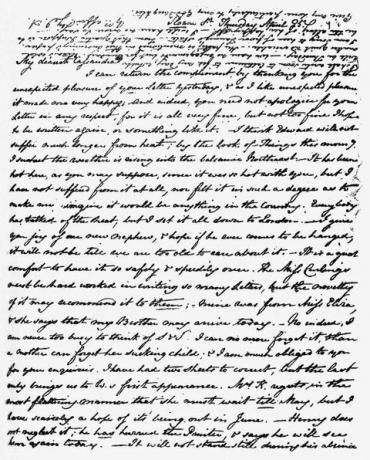 Sloane St. Thursday April 25.
My dearest Cassandra
I can return the compliment by thanking you for the
unexpected pleasure of your Letter yesterday, & as I like unexpected pleasure,
it made me very happy; And indeed, you need not apologise for your
Letter in any respect, for it is all very fine, but not too fine I hope
to be written again, or something like it. I think Edward will not
suffer much longer from heat; by the look of Things this morn.g
I suspect the weather is rising into the balsamic Northeast. It has been
hot here, as you may suppose, since it was so hot with you, but I
have not suffered from it at all, nor felt it in such a degree as to
make me imagine it would be anything in the Country. Everybody
has talked of the heat, but I set it all down to London. I give
you joy of our new nephew, & hope if he ever comes to be hanged,
it will not be till we are too old to care about it. It is a great
comfort to have it so safely & speedily over. The Miss Curlings
must be hard worked in writing so many Letters, but the novelty
of it may recommend it to them; Mine was from Miss Eliza,
& she says that my Brother may arrive today. No indeed, I
am never too busy to think of S & S. I can no more forget it, than
a mother can forget her sucking child; & I am much obliged to you
for your enquiries. I have had two sheets to correct, but the last
only brings us to W.s first appearance. Mrs K. regrets in the
most flattering manner that she must wait till May, but I
have scarcely a hope of its being out in June. Henry does
not neglect it; he has hurried the Printer, & says he will see
him again today. It will not stand still during his absence